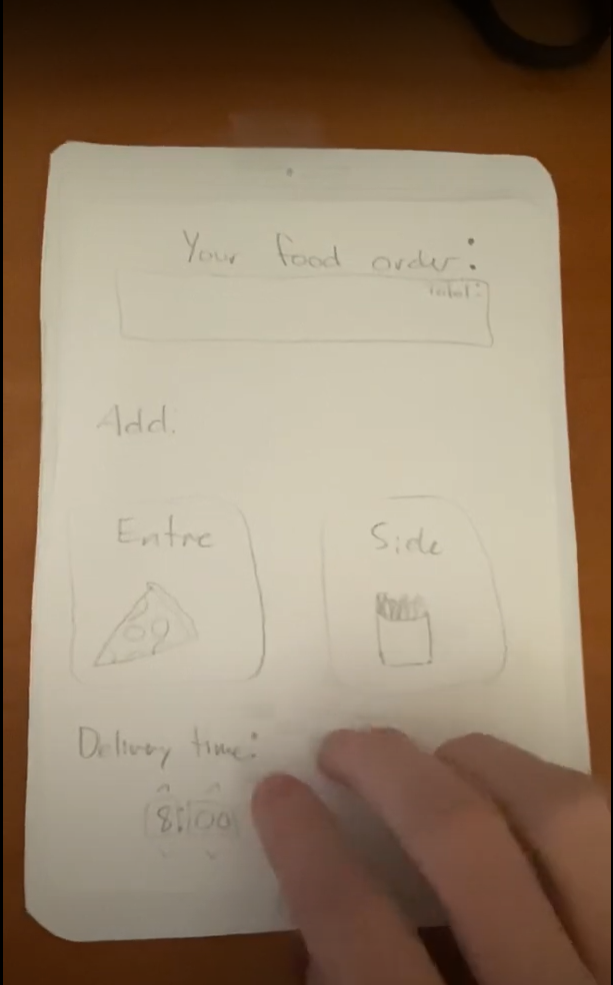 Your food order:
Total:
Add.
Entre
Side
Delivery time:
8:00